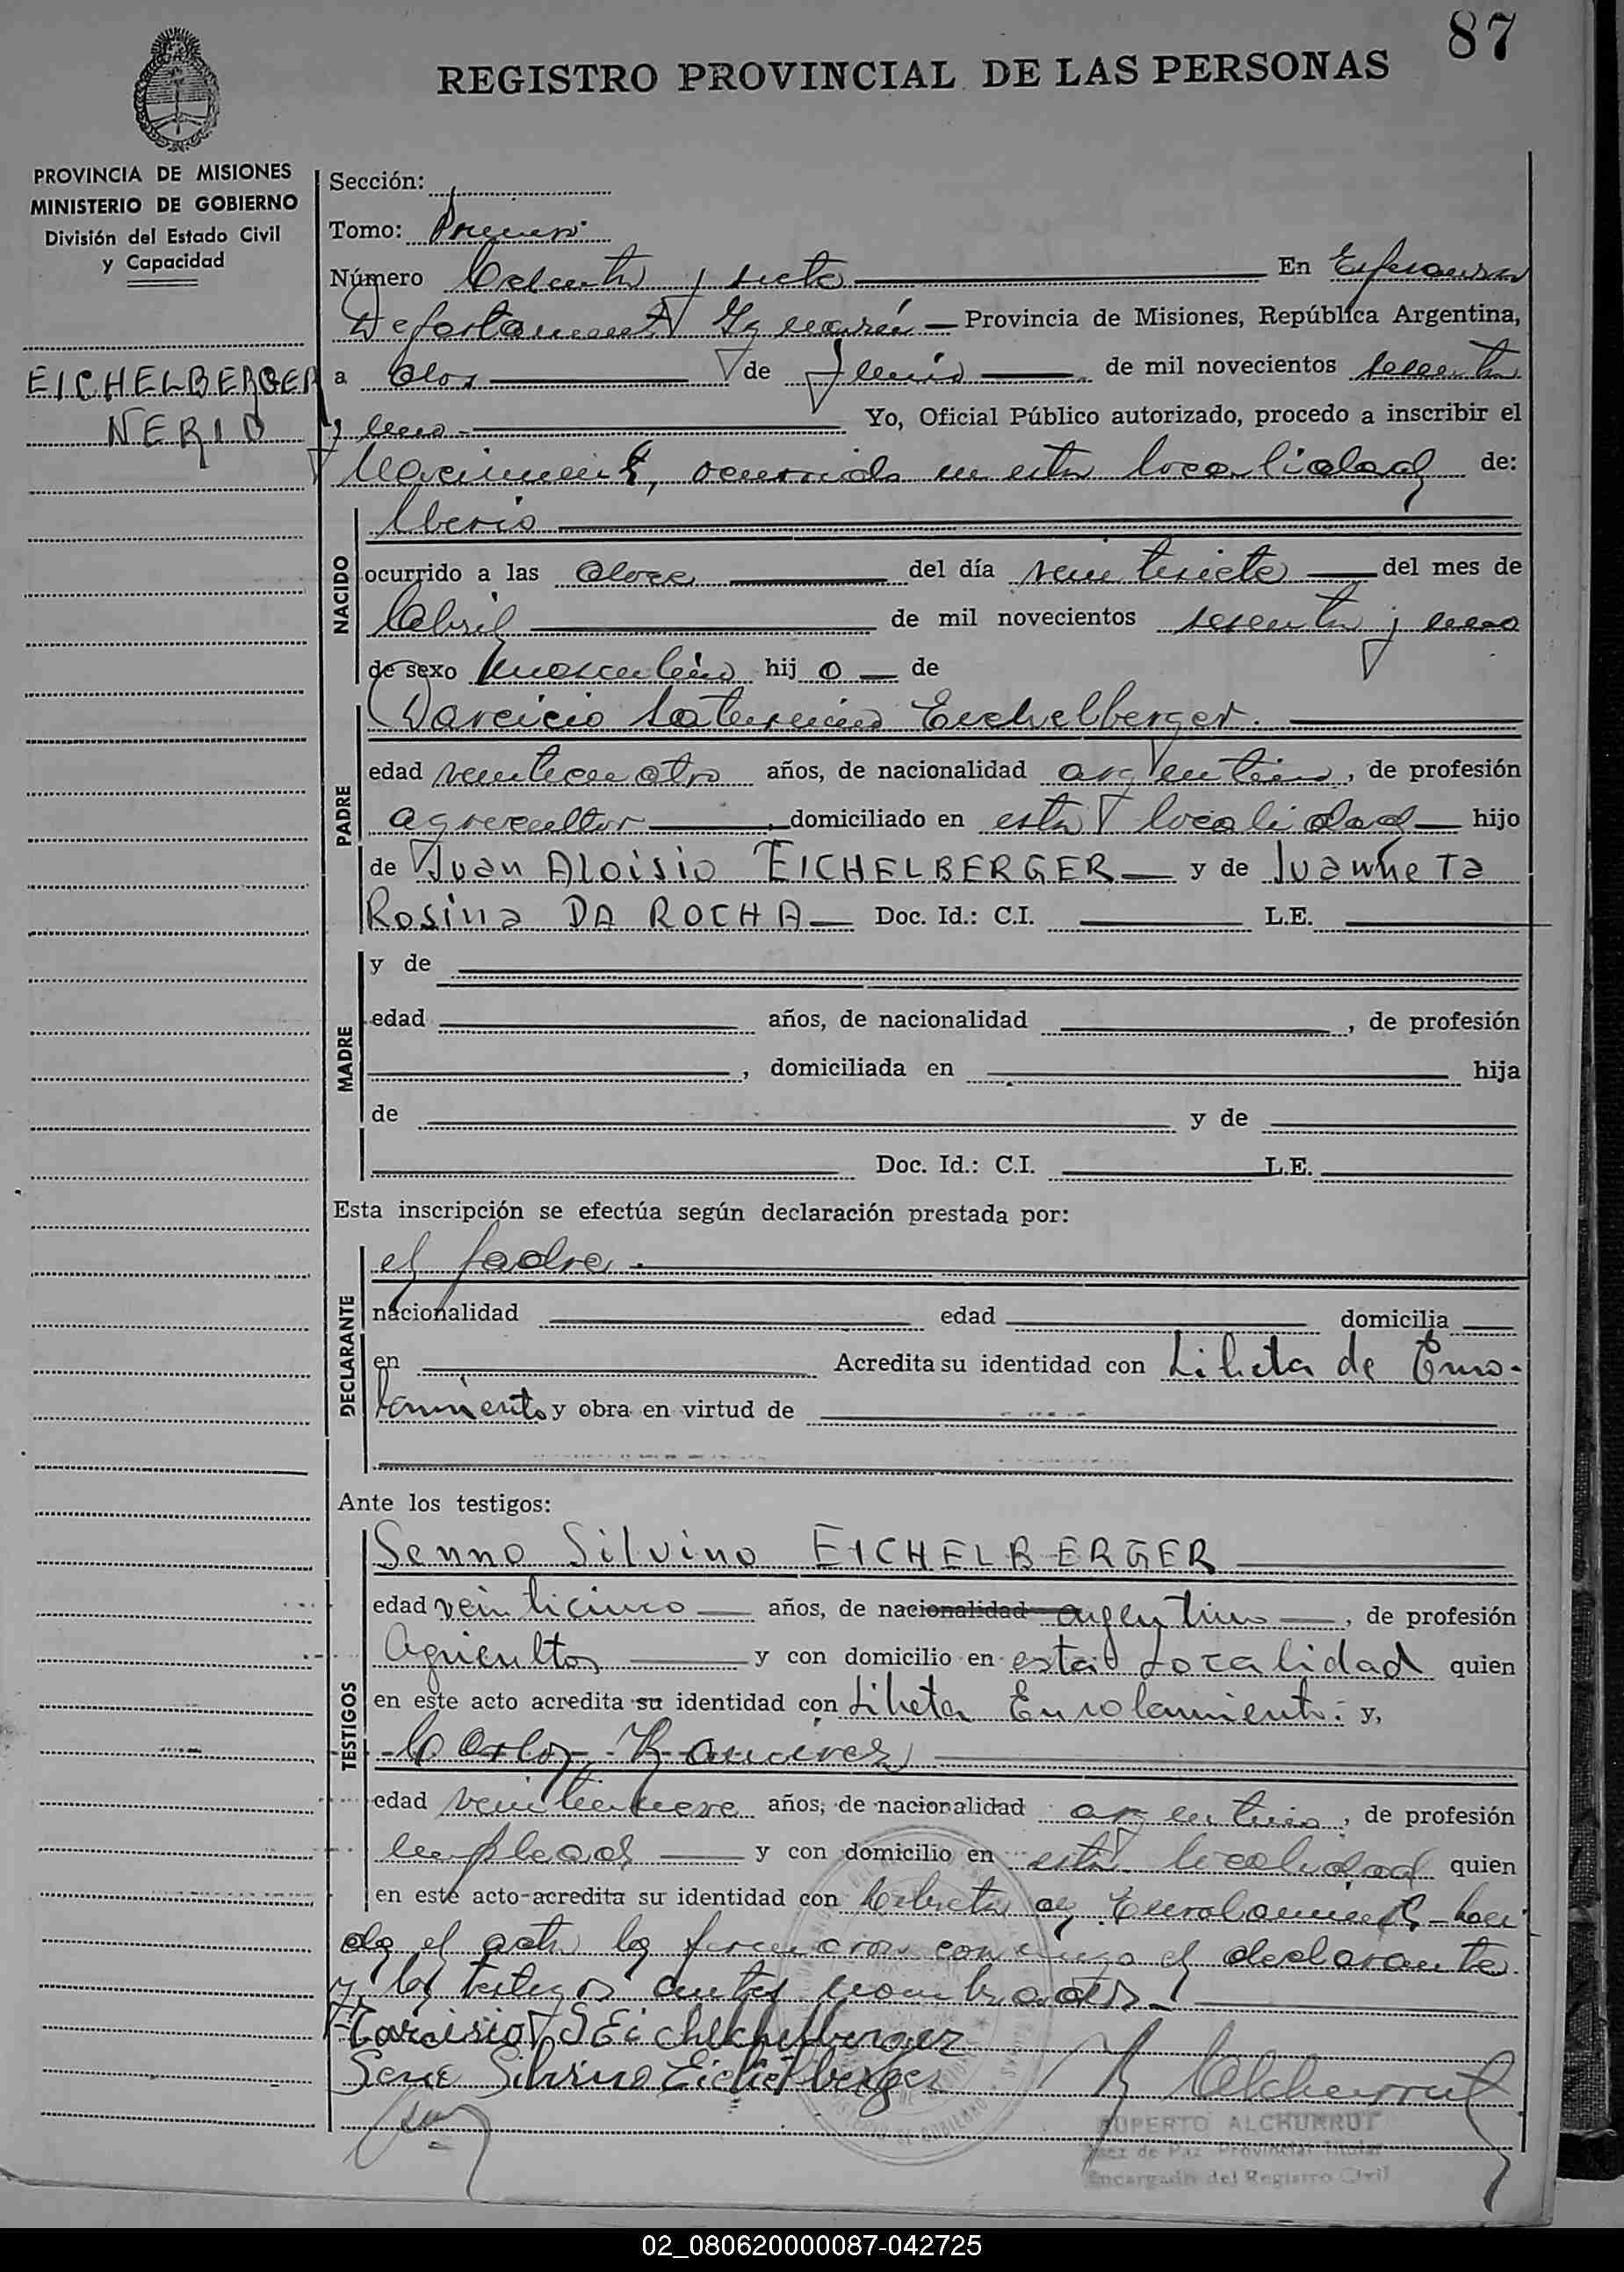 87
REGISTRO PROVINCIAL DE LAS PERSONAS
PROVINCIA DE MISIONES
MINISTERIO DE GOBIERNO
División del Estado Civil
y Capacidad
EICHELBERGER
NERIO
Sección:
Tomo: Primero
Número Ochenta y siete En Esperanza
Departamento Iguazú Provincia de Misiones, República Argentina,
a dos de Junio de mil novecientos sesenta
y uno Yo, Oficial Público autorizado, procedo a inscribir el
Nacimiento, ocurrido en esta localidad de:
Nerio
NACIDO
ocurrido a las doce del día veintisiete del mes de
Abril de mil novecientos sesenta y uno
de sexo masculino hijo de
PADRE
Darcicio Saturnino Eichelberger.
edad veinticuatro años, de nacionalidad argentino, de profesión
agricultor, domiciliado en esta localidad hijo
de Juan Aloisio EICHELBERGER y de Juanneta
Rosina DA ROCHA Doc. Id.: C.I. L.E.
MADRE
y de
edad años, de nacionalidad , de profesión
, domiciliada en hija
de y de
Doc. Id.: C.I. L.E.
Esta inscripción se efectúa según declaración prestada por:
DECLARANTE
el padre.
nacionalidad edad domicilia
en Acredita su identidad con Libreta de Enro-
lamiento y obra en virtud de
Ante los testigos:
TESTIGOS
Senno Silvino EICHELBERGER
edad veinticinco años, de nacionalidad argentino, de profesión
Agricultor y con domicilio en esta Localidad quien
en este acto acredita su identidad con Libreta Enrolamiento: y,
Carlos Ramirez
edad veintinueve años, de nacionalidad argentino, de profesión
empleado y con domicilio en esta localidad quien
en este acto acredita su identidad con Libreta de Enrolamiento - Leí
da el acta la firmaron conmigo el declarante
y los testigos antes nombrados.
Tarcisio S Eichelberger
Sene Silvino Eichelberger
R Alchurrut
RUPERTO ALCHURRUT
Juez de Paz Provincial Titular
Encargado del Registro Civil
02_080620000087-042725